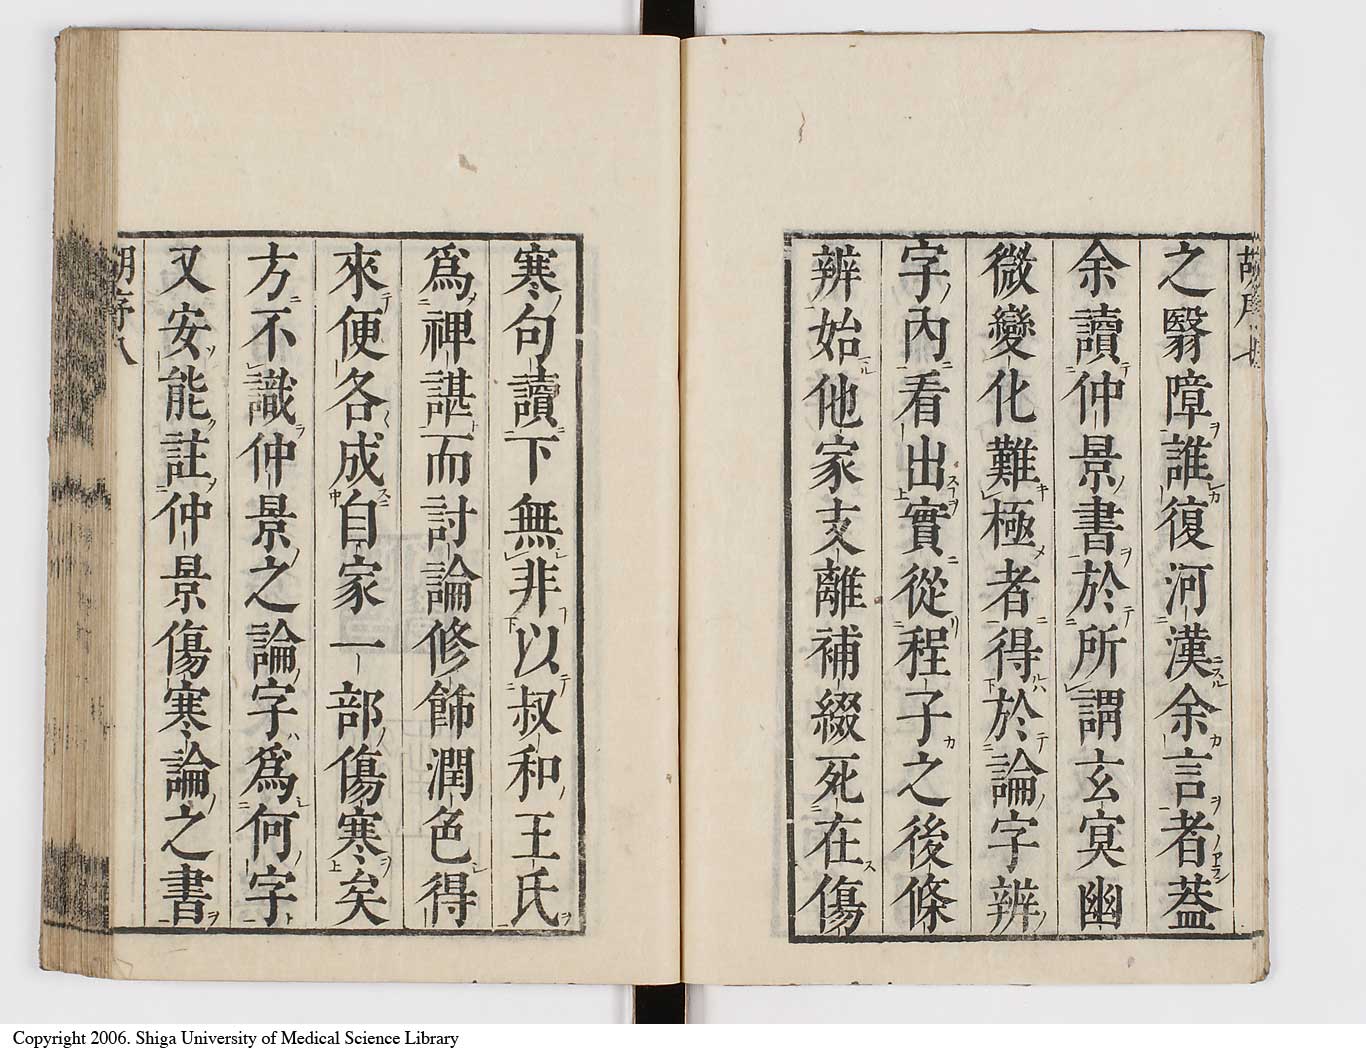 之翳障誰復河漢余言者葢
余讀仲景書於所謂玄冥幽
微變化難極者得於論字辨
字內看出實從程子之後條
辨始他家支離補綴死在傷
寒句讀下無非以叔和王氏
爲裨諶而討論修飾潤色得
來便各成自家一部傷寒矣
方不識仲景之論字爲何字
又安能註仲景傷寒論之書
胡序八
Copyright 2006. Shiga University of Medical Science Library